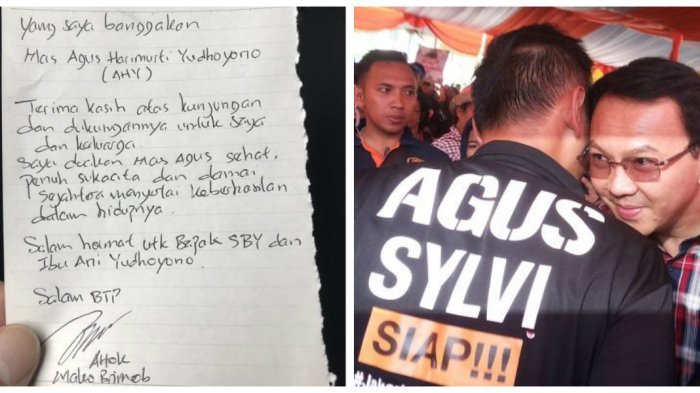 yang saya banggakan
Mas Agus Harimurti Yudhoyono
(AHY)
Terima kasih atas kunjungan
dan dukungannya untuk saya
dan keluarga.
Saya doakan Mas Agus sehat,
penuh sukacita dan damai
sejahtera menyertai keberhasilan
dalam hidupnya.
Salam hormat utk Bapak SBY dan
Ibu Ani Yudhoyono.
Salam BTP
AHok
Mako Brimob
AGUS
SYLVI
SIAP!!!